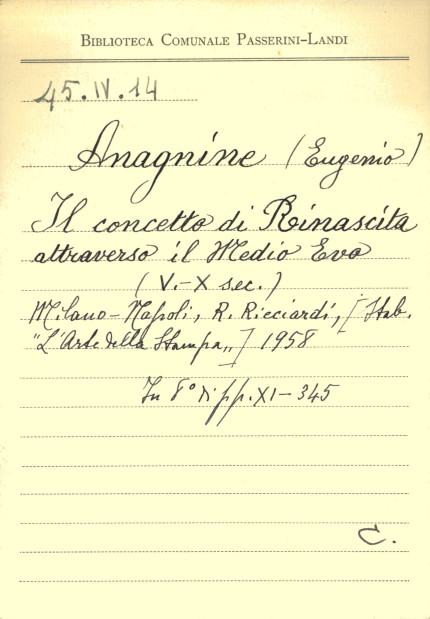 BIBLIOTECA COMUNALE PASSERINI-LANDI
45.IV.14
Anagnine (Eugenio)
Il concetto di Rinascita
attraverso il Medio Evo
(V.-X sec.)
Milano-Napoli, R. Ricciardi, [Stab.
"L'Arte della Stampa„] 1958
In 8° di pp. XI-345
C.